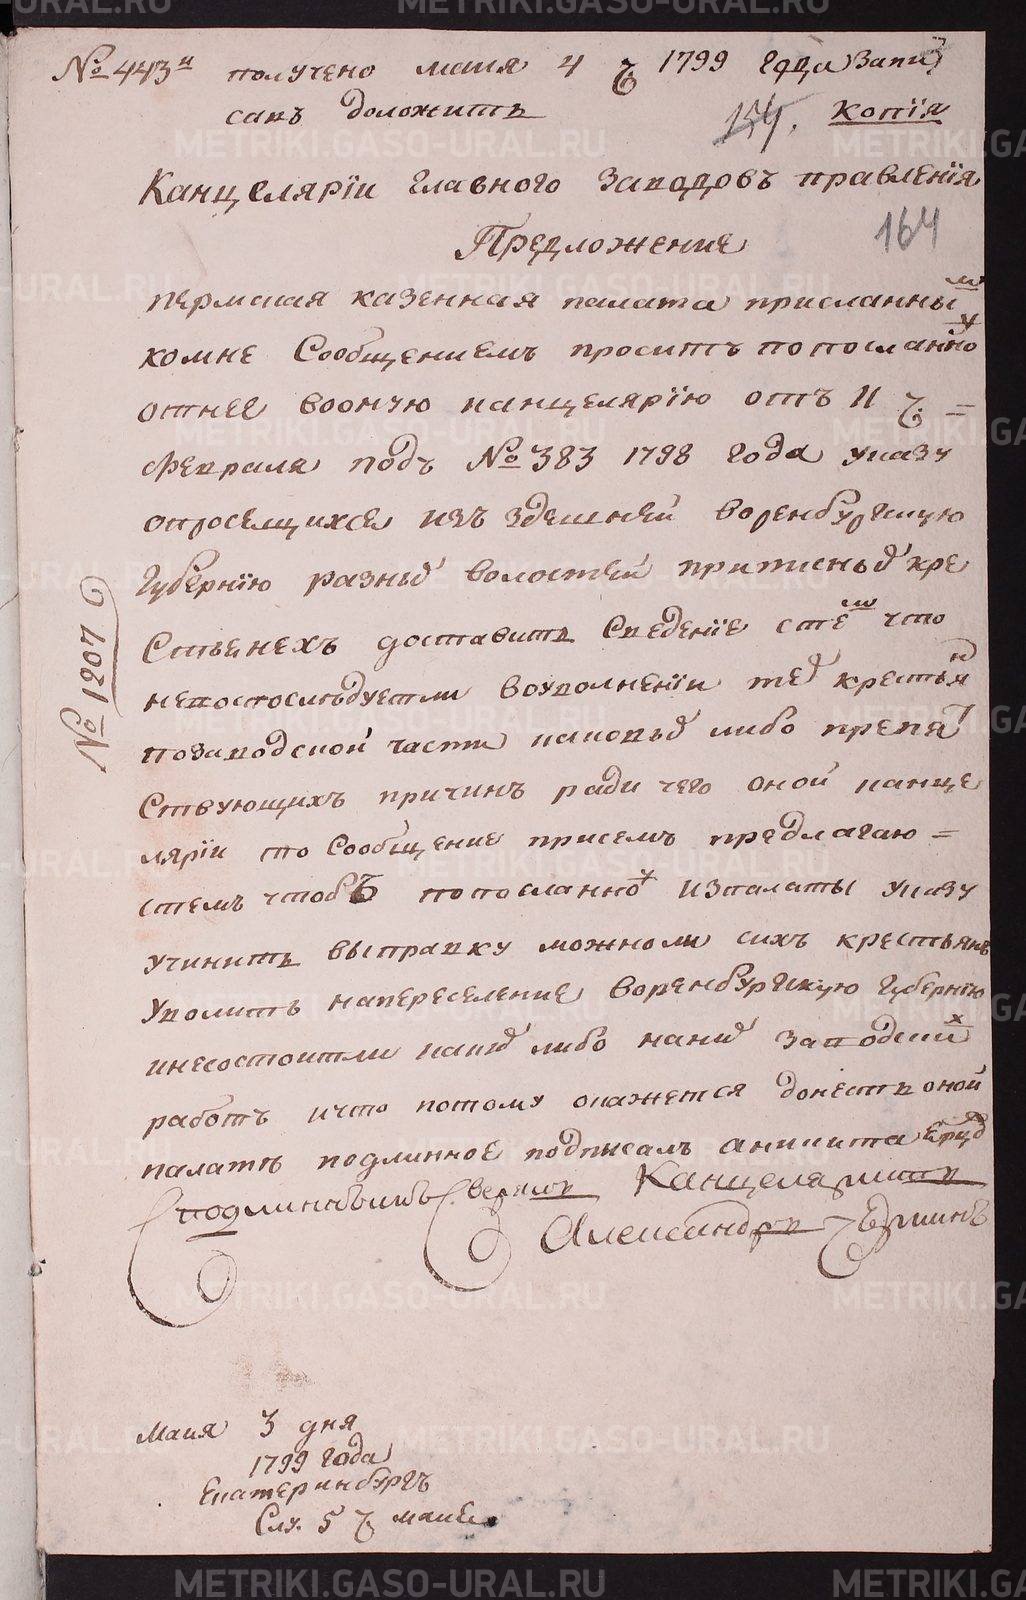 № 443й получено маия 4 ч 1799 года запи
санъ доложить
154. Копїя
Канцелярїи главного заводовъ правленїя
Предложение
164
пермская казенная палата присланным
комне сообщениемъ проситъ попосланному
отнее вооную канцелярїю отъ 11 ч =
февраля подъ № 383 1798 года указу
опросящихся изъ здешней воренбургскую
губернїю разныхъ волостей приписныхъ кре
стьянехъ доставить сведенїе стем что
непостоследуетли воуволненїи техъ крестьян
позаводской части каковыхъ либо препят
ствующихъ причинъ ради чего оной канце
лярїи то сообщение присемъ предлагаю =
стемъ чтобъ попосланному изпалаты указу
учинить выправку можноли сихъ крестьянъ
уволить напереселение воренбургскую губернїю
инесостоитли какихъ либо наних заводских
работъ ичто потому окажется донесть оной
палате подлинное подписалъ аникита ярцов
сподлиннымъ сверялъ Канцеляристъ
Александръ
№ 1207
Маия 3 дня
1799 года
Екатеринбургъ
Слу. 5 ч маие
METRIKI.GASO-URAL.RU